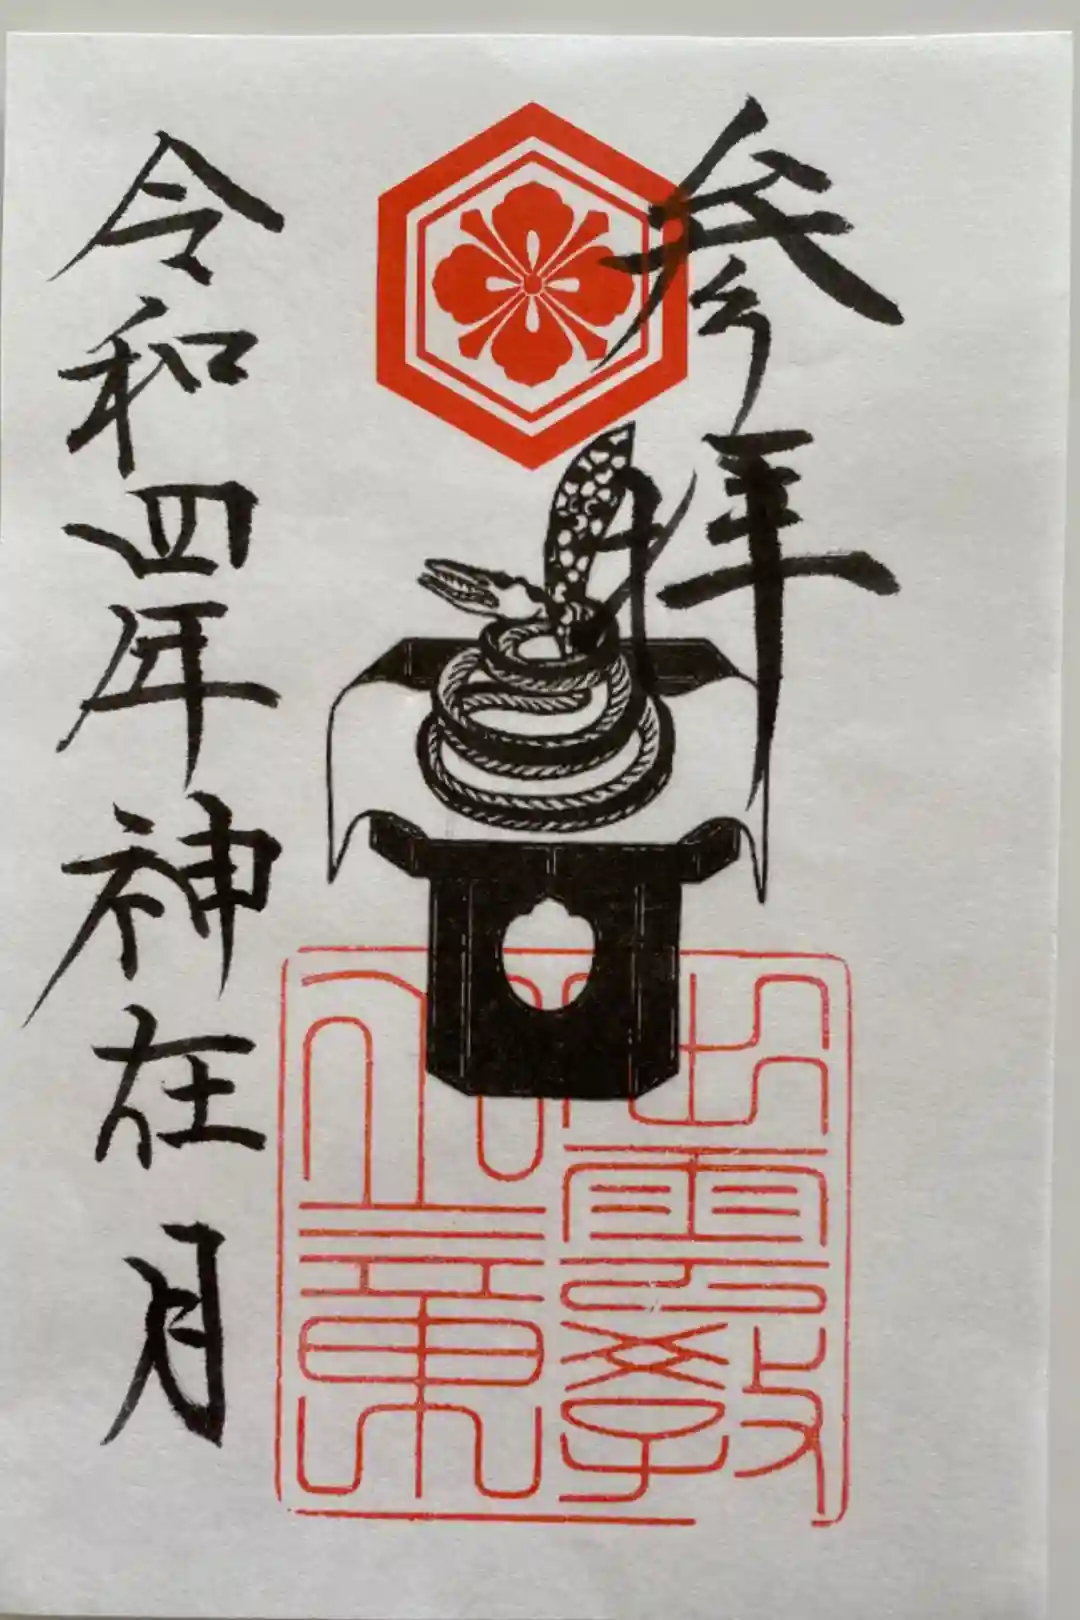 参拝
出雲教
令和四年神在月